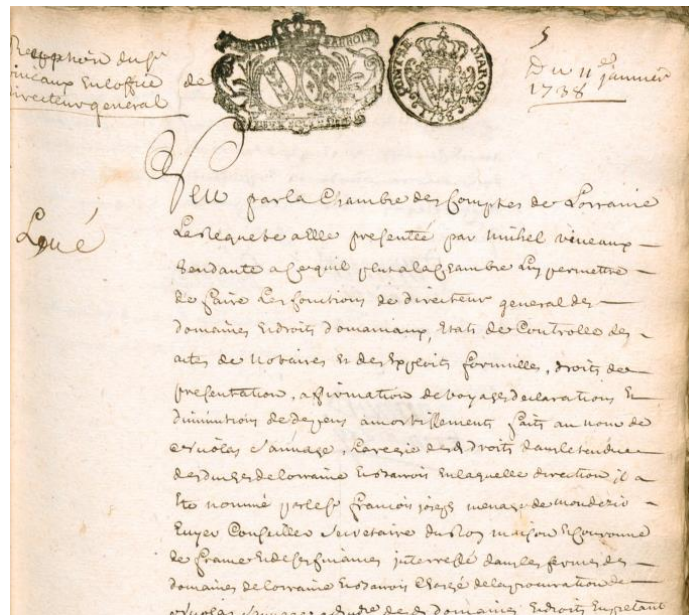 Reception du Sr
Vineaux en loffice de
directeur general
LORRAINE BARROIS
CONTRE MARQUE
1738
5
Du 11 Janvier
1738
Veu par la Chambre des Comptes de Lorraine
Loué
La Requete a Elle presentée par Michel Vineaux
tendante a Ce quil plut a la Chambre luy permettre
de faire Les fonctions de directeur general des
domaines et droits domaniaux, Etats de Controlle des
actes de Notaires et des Exploits formulles, droits de
presentation, affirmation de voyages declarations Et
diminutions de depens amortissements faits au nom de
Nicolas Sauvage, La regie desd droits dans letendue
des duchez de lorraine Et de barrois En laquelle direction il a
Eté nommé par le Sr francois joseph menage de mondesir
Ecuyer Conseiller Secretaire du Roy maison Et Couronne
de france Et de ses finances interressé dans les fermes des
domaines de lorraine Et de barrois Chargé de la procuration de
Nicolas Sauvage de domaines Et droits